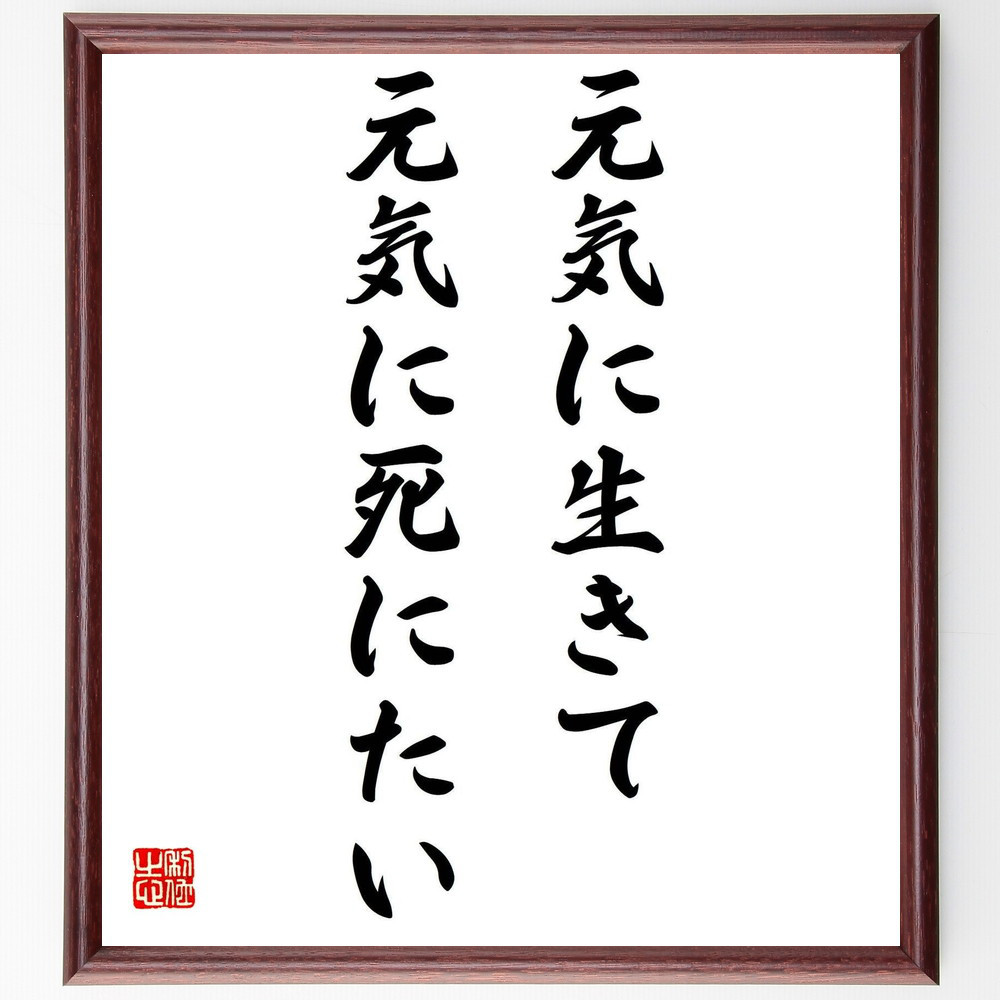 元気に生きて
元気に死にたい